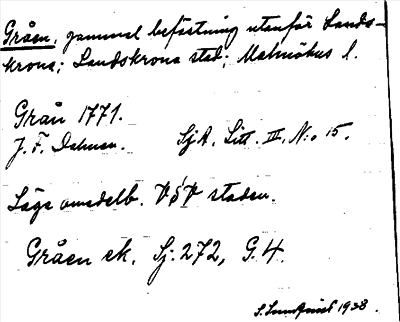 Gråen, gammal befästning utanför Lands-
krona; Landskrona stad; Malmöhus l.
Grån 1771.
J. F. Dahman. SjA, Litt. III, N:o 15.
Läge omedelb. V ó V staden.
Gråen ek. Sj. 272, G. 4.
1928.